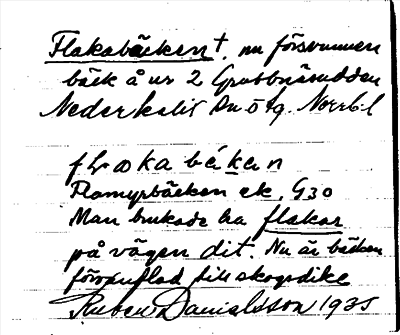 Flakabäcken†, nu försvunnen
bäck å ur 2 Grubbnäsudden
Nederkalix sn ö tg. Norrb. l
flakabäkan
Flamyrbäcken ek. G30
Man brukade ha flakar
på vägen dit. Nu är bäcken
förvandlad till skogsdike
Ruben Danielsson 1935